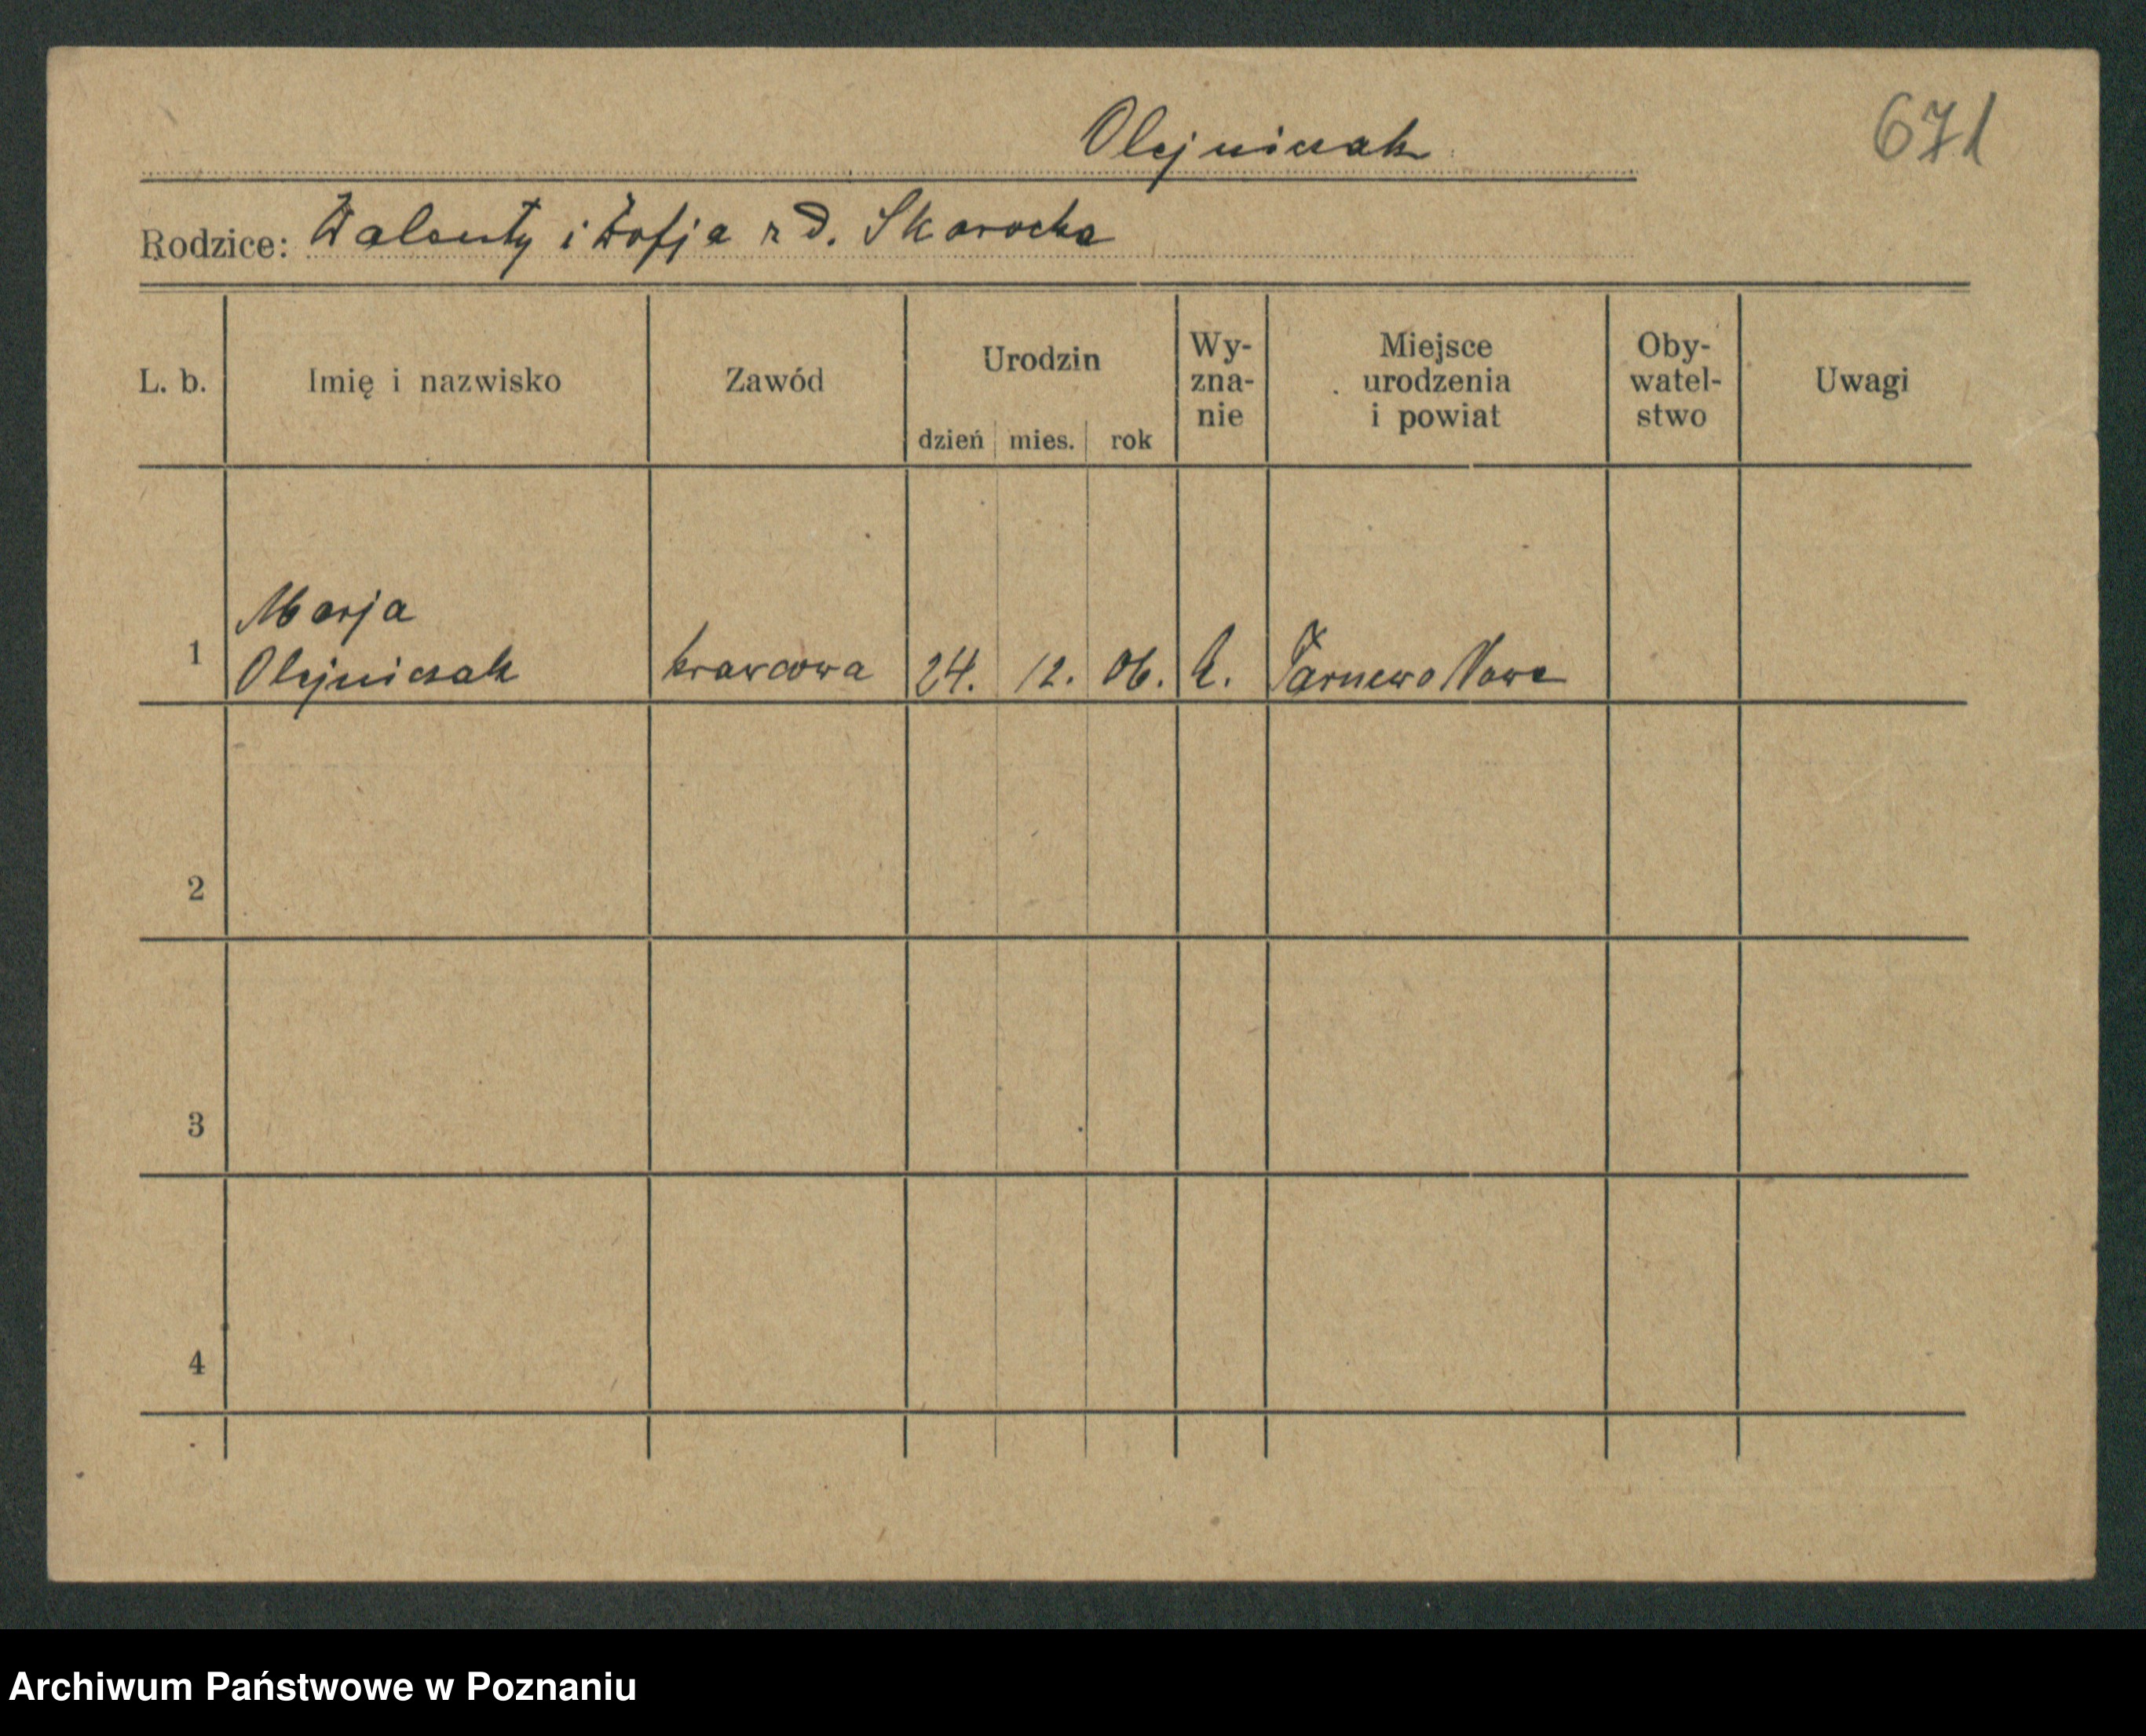 Olejniczak
671
Rodzice: Walenty i Zofja z d. Skarocka
L. b. Imię i nazwisko Zawód Urodzin dzień mies. rok Wy-zna-nie Miejsce urodzenia i powiat Oby-watel-stwo Uwagi
Marja
1 Olejniczak krawcowa 24. 12. 06. k. Tarnowo Nowe
2
3
4
Archiwum Państwowe w Poznaniu